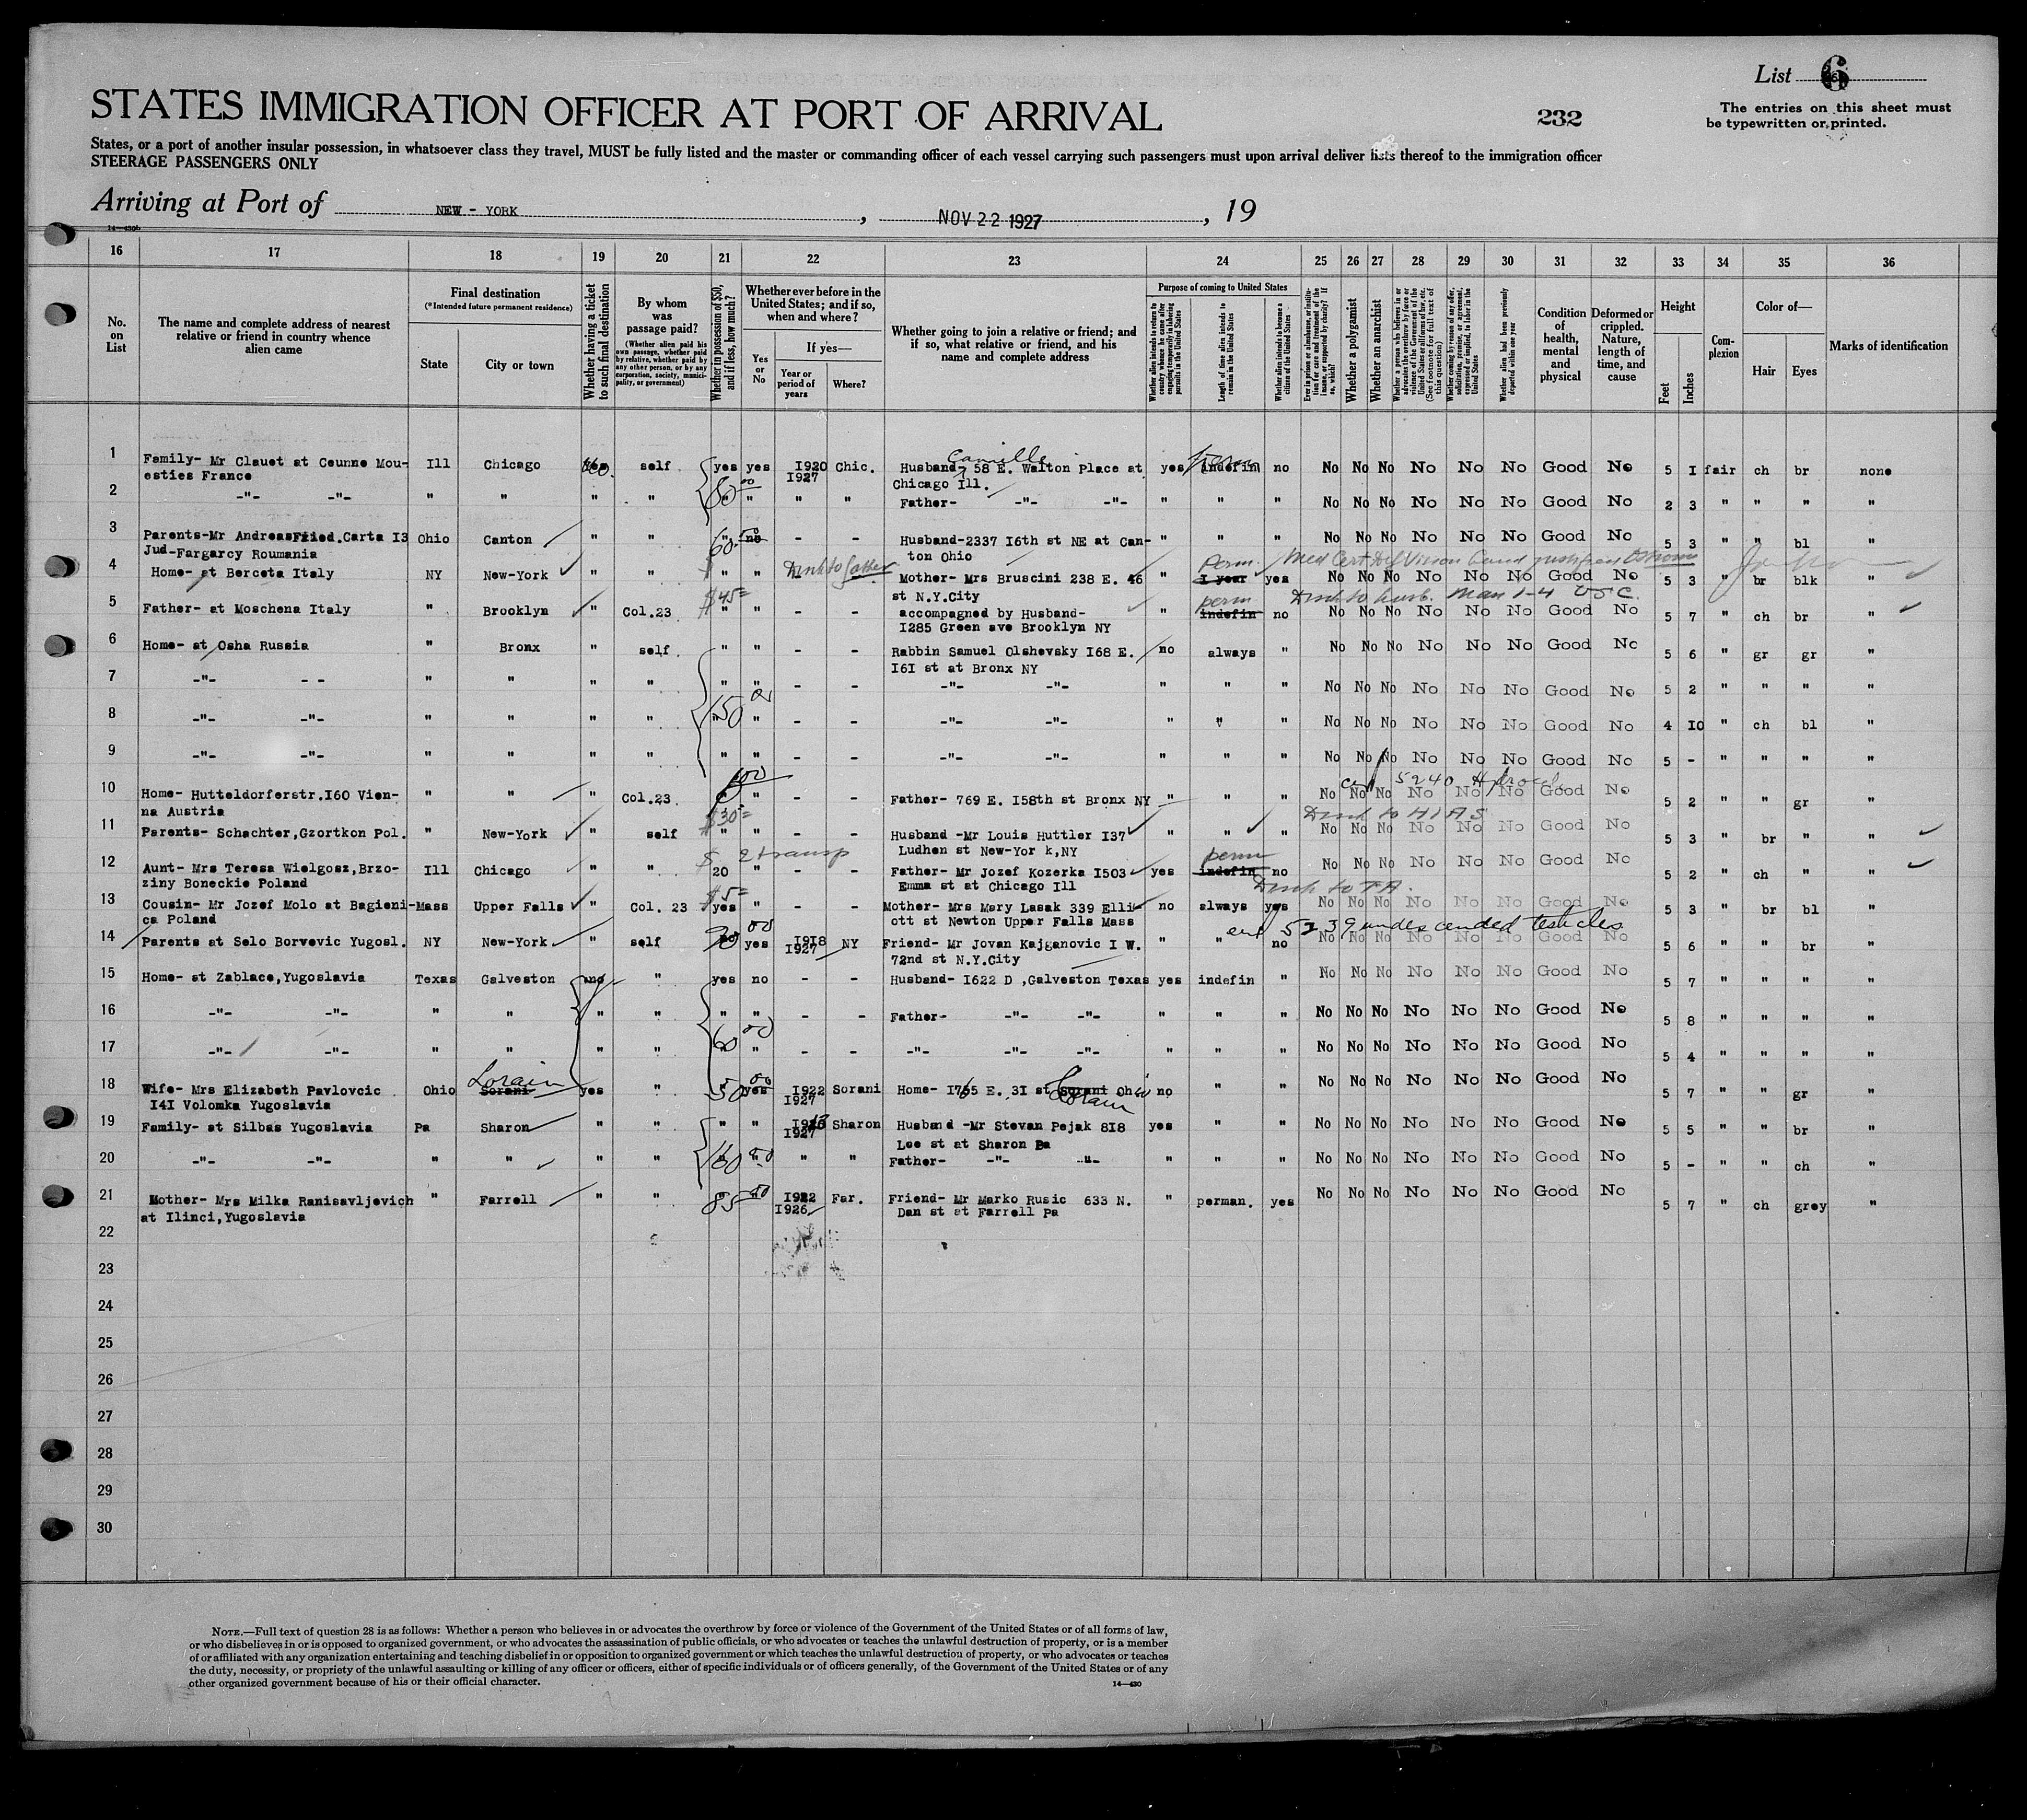 List 6
STATES IMMIGRATION OFFICER AT PORT OF ARRIVAL
232
The entries on this sheet must
be typewritten or printed.
States, or a port of another insular possession, in whatsoever class they travel, MUST be fully listed and the master or commanding officer of each vessel carrying such passengers must upon arrival deliver lists thereof to the immigration officer
STEERAGE PASSENGERS ONLY
Arriving at Port of NEW - YORK , NOV 22 1927 , 19
14-430b
16 17 18 19 20 21 22 23 24 25 26 27 28 29 30 31 32 33 34 35 36
No. on List
The name and complete address of nearest relative or friend in country whence alien came
Final destination
(*Intended future permanent residence)
State
City or town
Whether having a ticket to such final destination
By whom was passage paid?
(Whether alien paid his own passage, whether paid by relative, whether paid by any other person, or by any corporation, society, municipality, or government)
Whether in possession of $50, and if less, how much?
Whether ever before in the United States; and if so, when and where?
Yes or No
If yes—
Year or period of years
Where?
Whether going to join a relative or friend; and if so, what relative or friend, and his name and complete address
Purpose of coming to United States
Whether alien intends to return to country whence he came after engaging temporarily in laboring pursuits in the United States
Length of time alien intends to remain in the United States
Whether alien intends to become a citizen of the United States
Whether a polygamist
Whether an anarchist
Whether alien had been previously deported within one year
Condition of health, mental and physical
Deformed or crippled. Nature, length of time, and cause
Height
Feet
Inches
Complexion
Color of—
Hair
Eyes
Marks of identification
Camille
1 Family- Mr Clauet at Ceunne Mou- Ill Chicago self yes yes 1920 Chic. Husband 58 E. Walton Place at yes indefin no No No No No No No Good No 5 1 fair ch br none
esties France 1927 Chicago Ill.
2 -"- -"- " " " " " " " " Father- -"- -"- " " " No No No No No No Good No 2 3 " " " "
3 Parents-Mr Andreas Fried.Carta I3 Ohio Canton " " 60 no - - Husband-2337 I6th st NE at Can- " " " No No No No No No Good No 5 3 " " bl "
Jud-Fargarcy Roumania ton Ohio
perm. Med Cert Def Vision
4 Home- at Berceta Italy NY New-York " " " " - Mother- Mrs Bruscini 238 E. 46 " I year yes No No No No No No Good No 5 3 " br blk "
st N.Y.City
$45= perm
5 Father- at Moschena Italy " Brooklyn " Col.23 " " - - accompagned by Husband- " indefin no No No No No No No Good No 5 7 ch br "
I285 Green ave Brooklyn NY
6 Home- at Osha Russia " Bronx " self " " - - Rabbin Samuel Olshevsky I68 E. no always " No No No No No No Good No 5 6 " gr gr "
I6I st at Bronx NY
7 -"- - - " " " " " " - - -"- -"- " " " No No No No No No Good No 5 2 " " " "
150 00
8 -"- -"- " " " " " " - - -"- -"- " " " No No No No No No Good No 4 10 " ch bl "
9 -"- -"- " " " " " " - - -"- -"- " " " No No No No No No Good No 5 - " " " "
5240
10 Home- Hutteldorferstr.I60 Vien- " " " Col.23 " - - Father- 769 E. I58th st Bronx NY " " " No No No No No No Good No 5 2 " " gr "
na Austria
$30= HIAS
11 Parents- Schachter,Gzortkon Pol. " New-York " self " " - - Husband -Mr Louis Huttler I37 " " " No No No No No No Good No 5 3 " br " "
Ludhen st New-Yor k,NY
perm
12 Aunt- Mrs Teresa Wielgosz,Brzo- Ill Chicago " " 20 " - - Father- Mr Jozef Kozerka I503 yes indefin no No No No No No No Good No 5 2 " ch " "
ziny Boneckie Poland Emma st at Chicago Ill
$5=
13 Cousin- Mr Jozef Molo at Bagieni- Mass Upper Falls " Col. 23 yes " - - Mother- Mrs Mary Lasak 339 Elli no always yes No No No No No No Good No 5 3 " br bl "
ca Poland ott st Newton Upper Falls Mass
5239 undescended testicles
14 Parents at Selo Borvevic Yugosl. NY New-York " self yes 1918 NY Friend- Mr Jovan Kajganovic I W. " " no No No No No No No Good No 5 6 " " br "
1927 72nd st N.Y.City
15 Home- at Zablace,Yugoslavia Texas Galveston no " yes no - - Husband- I622 D ,Galveston Texas yes indefin " No No No No No No Good No 5 7 " " " "
16 -"- -"- " " " " " " - - Father- -"- -"- " " " No No No No No No Good No 5 8 " " " "
60 00
17 -"- -"- " " " " " - - -"- -"- -"- " " " No No No No No No Good No 5 4 " " " "
Lorain
18 Wife- Mrs Elizabeth Pavlovcic Ohio Sorani yes " 50 00 yes 1922 Sorani Home- I765 E. 3I st Sorani Ohio no " " No No No No No No Good No 5 7 " " gr "
I4I Volomka Yugoslavia 1927 Lorain
19 Family- at Silbas Yugoslavia Pa Sharon " " " " 1913 Sharon Husband -Mr Stevan Pejak 8I8 yes " " No No No No No No Good No 5 5 " " br "
1927 Lee st at Sharon Pa
20 -"- -"- " " " " 160 00 " " " Father- -"- -"- " " " No No No No No No Good No 5 - " " ch "
21 Mother- Mrs Milka Ranisavljevich " Farrell " " 85 00 1922 Far. Friend- Mr Marko Rusic 633 N. " perman. yes No No No No No No Good No 5 7 " ch grey "
at Ilinci,Yugoslavia 1926 Dan st at Farrell Pa
22
23
24
25
26
27
28
29
30
NOTE.—Full text of question 28 is as follows: Whether a person who believes in or advocates the overthrow by force or violence of the Government of the United States or of all forms of law,
or who disbelieves in or is opposed to organized government, or who advocates the assassination of public officials, or who advocates or teaches the unlawful destruction of property, or is a member
of or affiliated with any organization entertaining and teaching disbelief in or opposition to organized government or which teaches the unlawful destruction of property, or who advocates or teaches
the duty, necessity, or propriety of the unlawful assaulting or killing of any officer or officers, either of specific individuals or of officers generally, of the Government of the United States or of any
other organized government because of his or their official character.
14—430